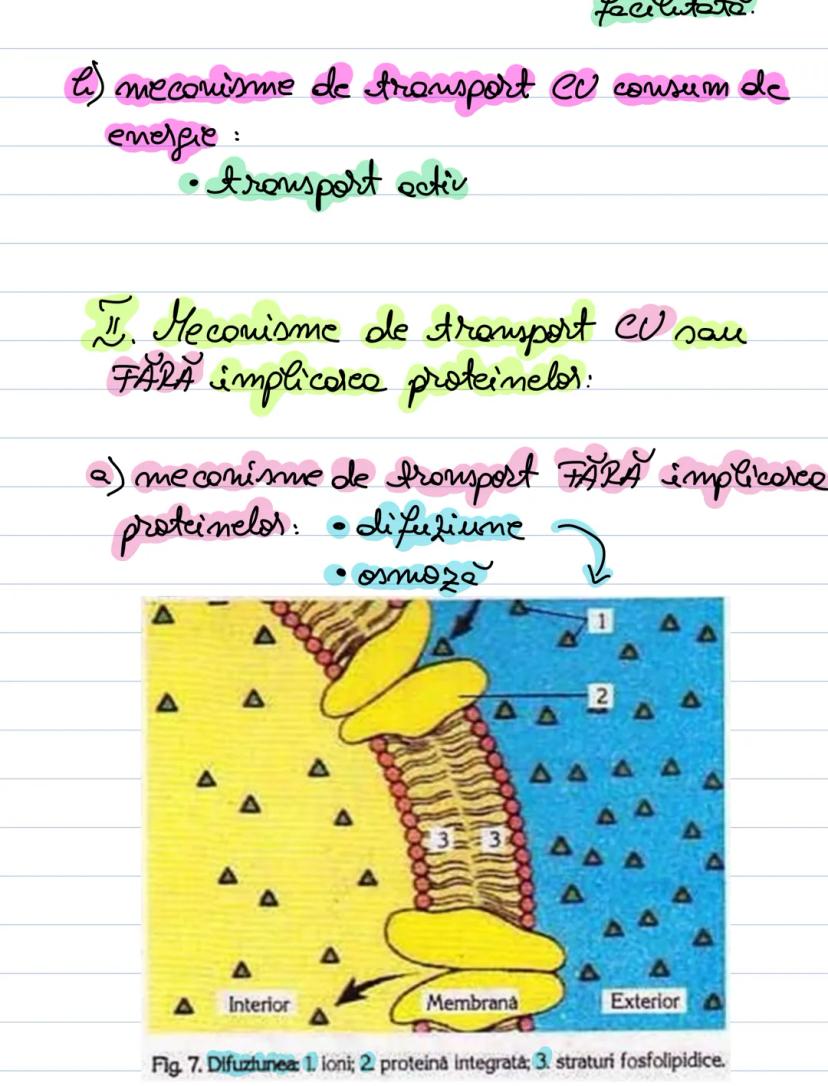 facilitată.
b) mecanisme de transport CU consum de
energie :
• transport activ
II. Mecanisme de transport CU sau
FĂRĂ implicarea proteinelor:
a) mecanisme de transport FĂRĂ implicarea
proteinelor: • difuziune
• osmoză
1
2
3 3
Interior Membrană Exterior
Fig. 7. Difuziunea: 1. ioni; 2. proteină integrată; 3. straturi fosfolipidice.